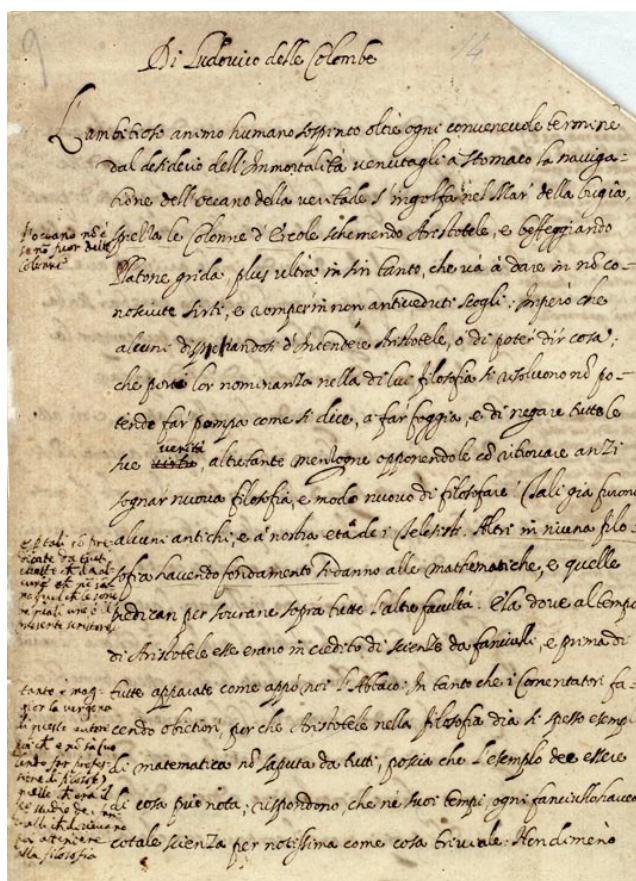 9
14
Di Ludovico delle Colombe
L'ambitioso animo humano sospinto oltre ogni convenevole termine
dal desiderio dell'Immortalità venutagli a stomaco la naviga-
tione dell'oceano della veritade s'ingolfa nel Mar della bugia,
sprezza le Colonne d'Ercole schernendo Aristotele, e beffeggiando
Platone grida plus ultra in sin tanto, che và à dare in nō co-
nosciute sirti, e romper in non antiveduti scogli; Imperò che
alcuni disperandosi d'Intendere Aristotele, ò di poter dir cosa,
che porti lor nominanza nella di lui filosofia si risolvono nō po-
tendo far pompa come si dice, a far foggia, e di negare tutte le
sue verità, altretante menzogne opponendole cō ritrovare anzi
sognar nuova filosofia, e modo nuovo di filosofare. Tali già furono
alcuni antichi, e a' nostra età de i Telesisti. Altri in niuna filo-
sofia havendo fondamento si danno alle mathematiche, e quelle
predican per sovrane sopra tutte l'altre facultà. E la dove al tempo
di Aristotele esse erano in credito di scienze da fanciulli, e prima di
tutte apparate come appò noi l'Abbaco: In tanto che i Comentatori fa-
cendo obiezioni, perche Aristotele nella filosofia dia si spesso esempli
di matematica nō saputa da tutti, poscia che l'esemplo dee essere
di cosa più nota; rispondono, che ne' suoi tempi, ogni fanciullo haveva
cotale scienza per notissima come cosa triviale. Nondimeno
l'oceano nō è
se nō fuor delle
Colonne
e p tali sō pre-
dicate da tutti
eccetto ch da al-
cuni ch nō san-
no quel ch le sono
ne i quali uno è il
presente scrittore
tanto è mag-
gior la vergogna
di questo autore
poi ch e nō sa (vo-
lendo far profes-
sione di filosofo)
quello ch era il
studio de fan-
ciulli ch dovevano
poi attendere
alla filosofia